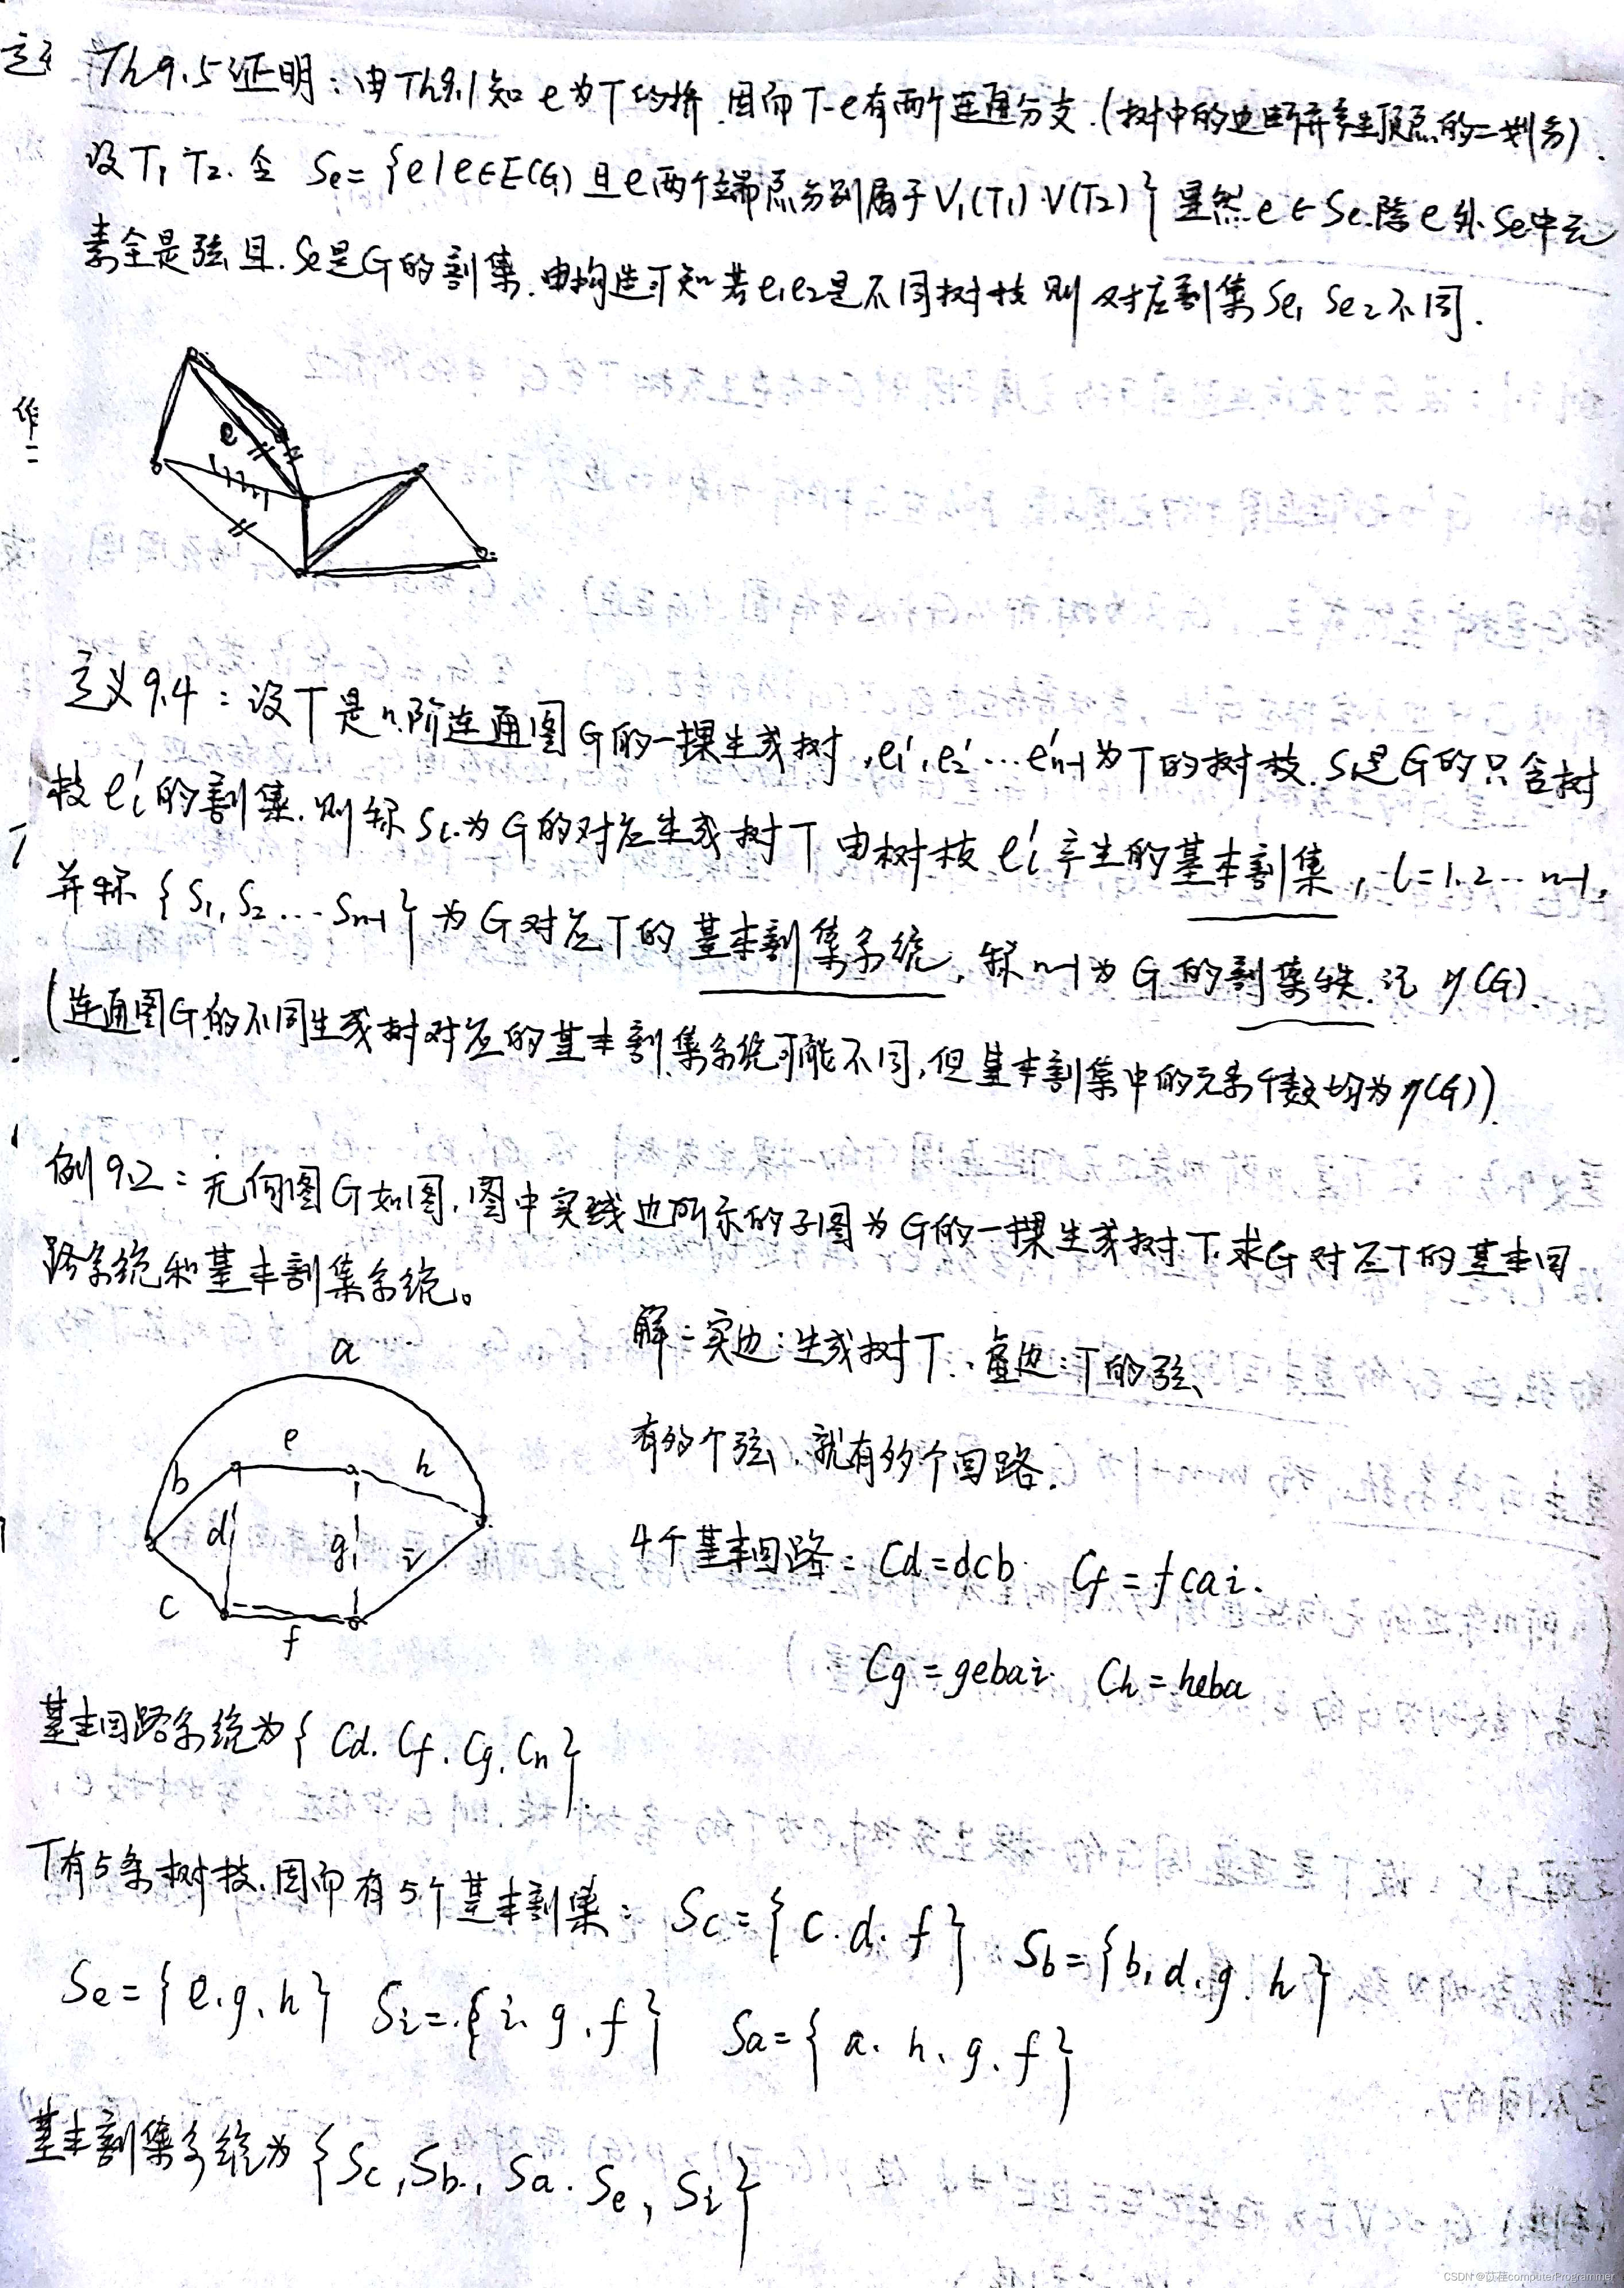 Th9.5证明：由Th9.1知e为T的桥，因而T-e有两个连通分支.(树中的边断开产生顶点的二划分).
设T₁ T₂. 令 Se={e|e∈E(G)且e两个端点分别属于V₁(T₁)·V(T₂)} 显然e∈Se.除e外.Se中元
素全是弦且.Se是G的割集.由构造可知若e₁e₂是不同树枝则对应割集Se₁ Se₂不同.
作
e
定义9.4：设T是n阶连通图G的一棵生成树,e₁',e₂'…e'n-1为T的树枝.Si是G的只含树
枝ei'的割集.则称Si为G的对应生成树T由树枝ei'产生的基本割集，i=1.2…n-1,
并称{S₁,S₂…Sn-1}为G对应T的基本割集系统,称n-1为G的割集秩.记η(G).
(连通图G的不同生成树对应的基本割集系统可能不同,但基本割集中的元素个数均为η(G)).
例9.2：无向图G如图.图中实线边所示的子图为G的一棵生成树T.求G对应T的基本回
路系统和基本割集系统。
解：实边：生成树T. 虚边：T的弦、
有多少个弦、就有多少个回路.
a
e
b
h
d
g
i
c
f
4个基本回路：Cd=dcb Cf=fcai.
Cg=gebai. Ch=heba
基本回路系统为{Cd.Cf.Cg.Ch}
T有5条树枝.因而有5个基本割集：Sc={c.d.f} Sb={b,d.g.h}
Se={e.g.h} Si={i.g.f} Sa={a.h.g.f}
基本割集系统为{Sc,Sb,Sa.Se,Si}
CSDN @苡荏computer/Programmer